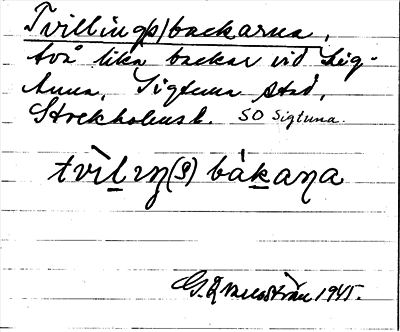 Tvilling(s)backarna,
två lika backar vid Sig-
tuna, Sigtuna stad,
Stockholmsl. SO Sigtuna.
tvìlıŋ(s)bákaɳa
1945.